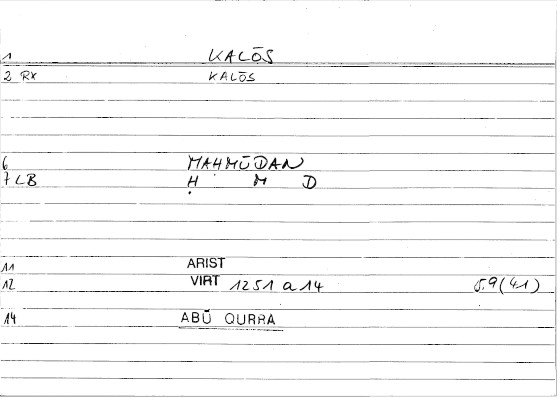 1 KALŌS
2 RX KALŌS
6 MAḤMŪDAN
7 LB Ḥ M D
11 ARIST
12 VIRT 1251 a 14 5.9 (4.1)
14 ABŪ QURRA